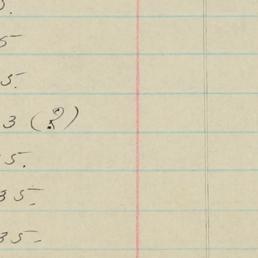 5.
5
5.
3 (?)
5.
35.
35.